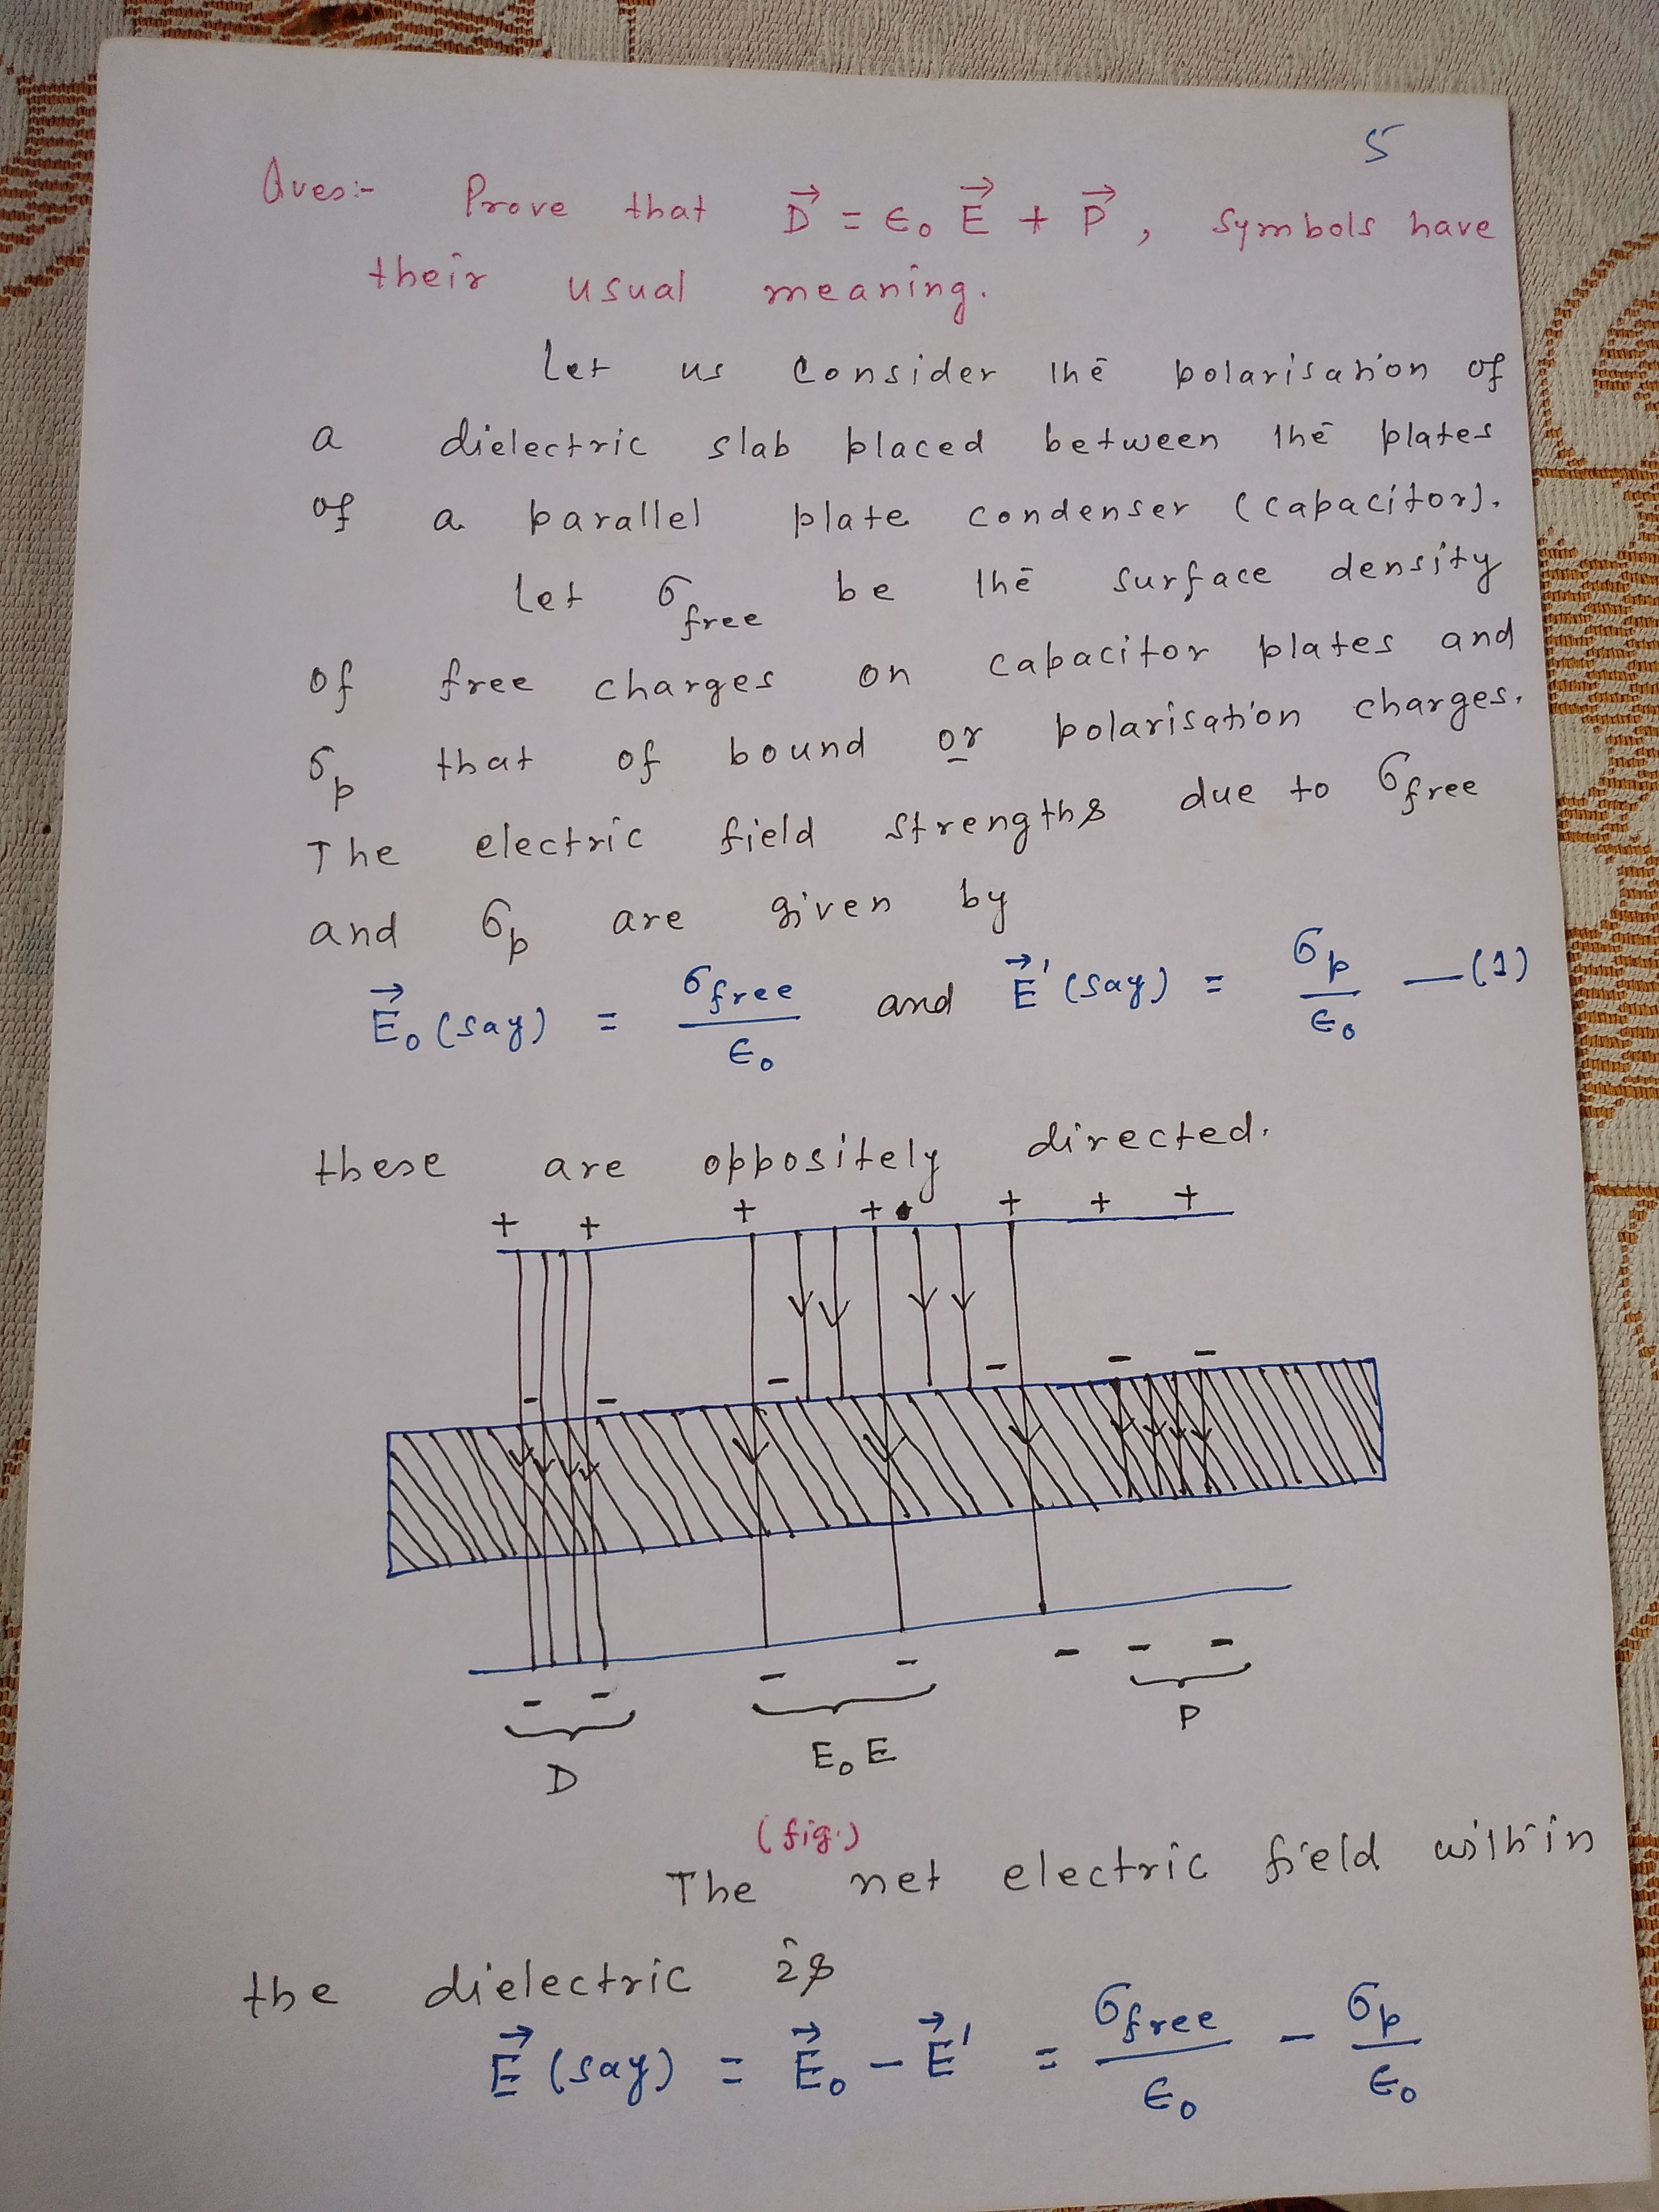 5
Ques:- Prove that D⃗ = ϵ₀ E⃗ + P⃗, symbols have
their usual meaning.
Let us consider the polarisation of
a dielectric slab placed between the plates
of a parallel plate condenser (capacitor).
Let σfree be the surface density
of free charges on capacitor plates and
σp that of bound or polarisation charges.
The electric field strengths due to σfree
and σp are given by
E⃗₀ (say) = σfree/ϵ₀ and E⃗' (say) = σp/ϵ₀ —(1)
these are oppositely directed.
+ + + + + + +
- - - - - -
- - - - - - -
D E₀E P
(fig.)
The net electric field within
the dielectric is
E⃗ (say) = E⃗₀ - E⃗' = σfree/ϵ₀ - σp/ϵ₀